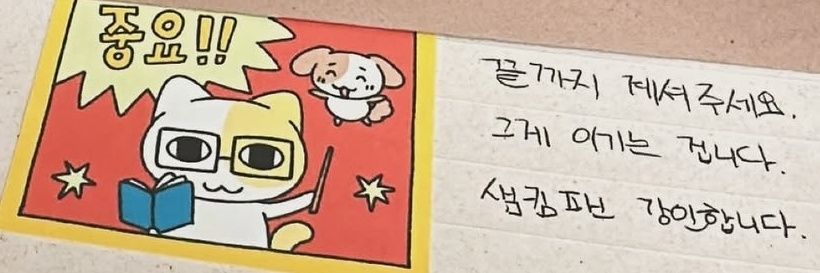 중요!!
끝까지 계셔주세요.
그게 이기는 겁니다.
강인합니다.